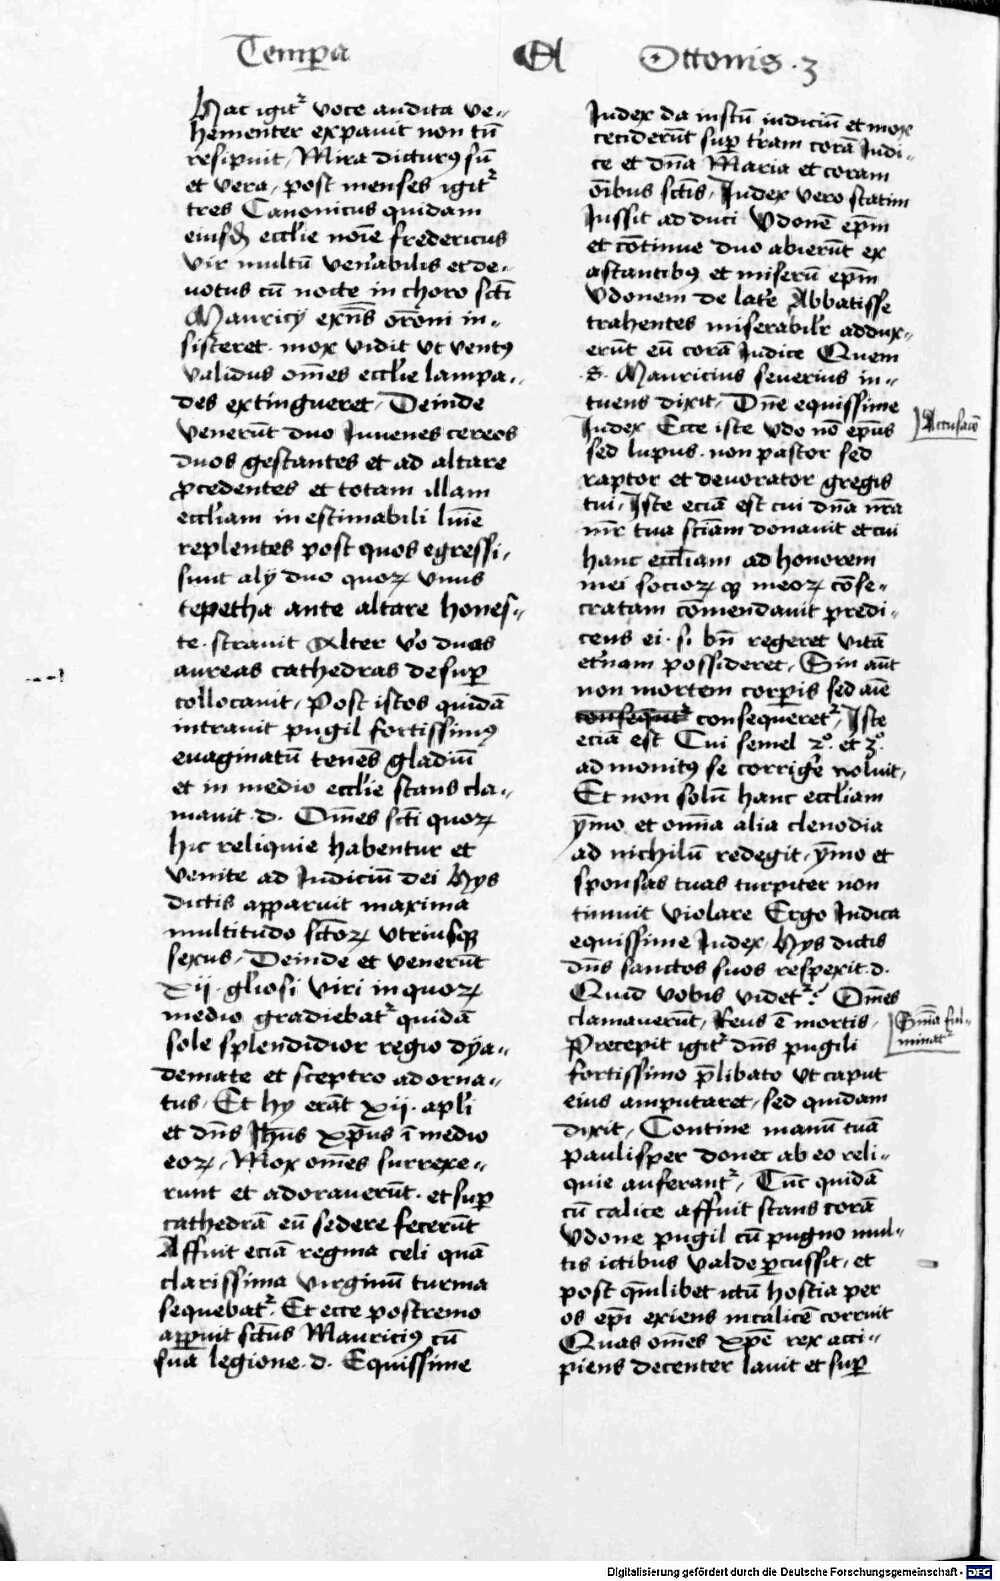 Temp̲a Et Ottonis · 3
Hac igit᷑ voce audita ve⸗
hementer expauit non tū
resipuit / Mira dicturꝰ sū
et vera / post menses igit᷑
tres Canonicus quidam
eiusdē eccl̄ie noīe fredericus
vir multū ven̄abilis et de⸗
uotus cū nocte in choro sct̄i
Mauricÿ exn̄s orōni in⸗
sisteret · mox vidit vt ventꝰ
validus om̄es eccl̄ie lampa⸗
des extingueret / Deinde
venerūt duo Juuenes cereos
duos gestantes et ad altare
ꝓcedentes et totam illam
eccl̄iam inestimabili lūīe
replentes post quos egressi
sunt alÿ duo quoꝝ vnus
tepetha ante altare hones⸗
te · strauit Alter v̄o duas
aureas cathedras desuꝑ
collocauit / Post istos quidā
intrauit pugil fortissimꝰ
euaginatū tenēs gladiū
et in medio eccl̄ie stans cla⸗
mauit · d · Om̄es sct̄i quoꝝ
hic reliquie habentur et
venite ad Judiciū dei Hys
dictis apparuit maxima
multitudo sct̄oꝝ vtriusqꝫ
sexus / Deinde et venerūt
xij · gl̄iosi viri in quoꝝ
medio gradiebat᷑ quidā
sole splendidior regio dÿa⸗
demate et sceptro adorna⸗
tus / Et hy erāt xij · apl̄i
et dn̄s Jhūs xp̄us ī medio
eoꝝ / Mox om̄es surrexe⸗
runt et adorauerūt · et suꝑ
cathedrā eū sedere fecerūt
Affuit eciā regina celi quā
clarissima virginū turma
sequebat᷑ · Et ecce postremo
apꝑuit sct̄us Mauriciꝰ cū
sua legione · d · Equissime
Judex da iustū iudiciū et mox
ceciderūt suꝑ t̄ram corā Judi⸗
ce et dn̄a Maria et coram
om̄ibus sct̄is / Judex vero statim
Jussit ad duci Vdonē ep̄m
et cōtinue duo abierūt ex
astantibꝰ et miserū ep̄m
Vdonem de lat̄e Abbatisse
trahentes miserabil̄r addux⸗
erūt eū corā Judice Quem
· S · Mauricius seuerius in⸗
tuens dixit / Dn̄e equissime
Judex Ecce iste vdo nō ep̄us
sed lupus · non pastor sed
raptor et deuorator gregis
tui / Iste eciā est cui dn̄a nr̄a
mr̄ tua sciām donauit et cui
hanc eccl̄iam ad honorem
mei socioꝝ qꝫ meoꝝ cōse⸗
cratam cōmendauit predi⸗
cens ei · si bn̄ regeret vitā
et̄nam possideret / Sin aūt
non mortem corꝑis sed aīe
consequūt᷑ consequeret᷑ / Iste
eciā est Cui semel 2° · et 3° ·
ad monitꝰ se corriḡe noluit /
Et non solū hanc eccl̄iam
ÿmo et omn̄a alia clenodia
ad nichilū redegit / ÿmo et
sponsas tuas turpiter non
timuit violare Ergo Judica
equissime Judex / Hys dictis
dn̄s sanctos suos respexit · d ·
Quid vobis videt᷑ ? Om̄es
clamauerūt / Reus ē mortis ·
Precepit igit᷑ dn̄s pugili
fortissimo p̄libato vt caput
eius amputaret / sed quidam
dixit / Contine manū tuā
paulisper donec ab eo reli⸗
quie auferant᷑ / Tūc quidā
cū calice affuit stans corā
Vdone pugil cū pugno mul⸗
tis ictibus valde ꝑcussit / et
post qūilibet ictū hostia per
os ep̄i exiens in calicē corruit
Quas om̄es xp̄e rex acci⸗
piens decenter lauit et suꝑ
Accusacō
Sn̄ia ful⸗
minat᷑
Digitalisierung gefördert durch die Deutsche Forschungsgemeinschaft - DFG